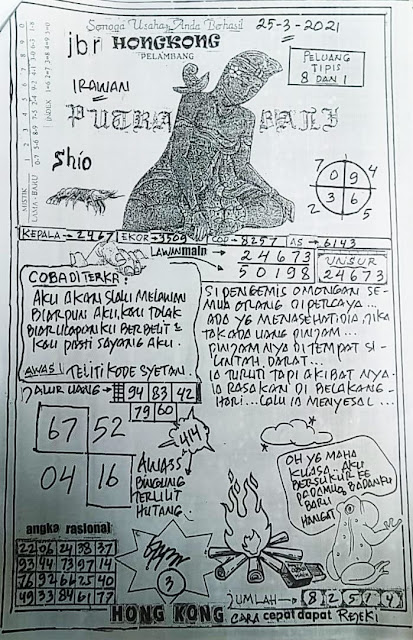 Semoga Usaha Anda Berhasil
25-3-2021
jbr HONGKONG
PELAMBANG
PELUANG
TIPIS
8 DAN 1
IRAWAN
PUTRA BALI
Shio
MISTIK
LAMA-BARU
INDEX
7 4
0 9
3 6
2 5
KEPALA → 2467 EKOR → 3509 COP → 8257 AS → 6143
LAWAN main
2 4 6 7 3
5 0 1 9 8
UNSUR
24673
COBA DI TERKA:
AKU AKAN SLALU MELAWAN
BIARPUN AKU, KAU TOLAK
BIAR UCAPAN KU BERBELIT2
KAU PASTI SAYANG AKU.
AWAS! TELITI KODE SYETAN.
SI PENGEMIS OMONGAN SE-
MUA ORANG DI PERCAYA...
ADA YG MENASEHATI DIA, JIKA
TAK ADA UANG PINJAM...
PINJAM NYA DI TEMPAT SI-
LINTAH DARAT...
IA TURUTI TAPI AKIBAT NYA.
IA RASAKAN DI BELAKANG-
HARI... LALU IA MENYESAL...
JALUR UANG
94 83 42
79 60
67 52
04 16
414
AWASS
BINGUNG
TERLILIT
HUTANG.
OH YG MAHA
KUASA.. AKU
BERSUKUR KE
PADAMU, BADANKU
BARU
HANGAT
angka rasional
22 06 24 38 37
93 44 73 97 14
76 92 66 25 40
49 33 84 61 77
3
JUMLAH → 8 2 5 7 4
HONG KONG CARA cepat dapat REJEKI